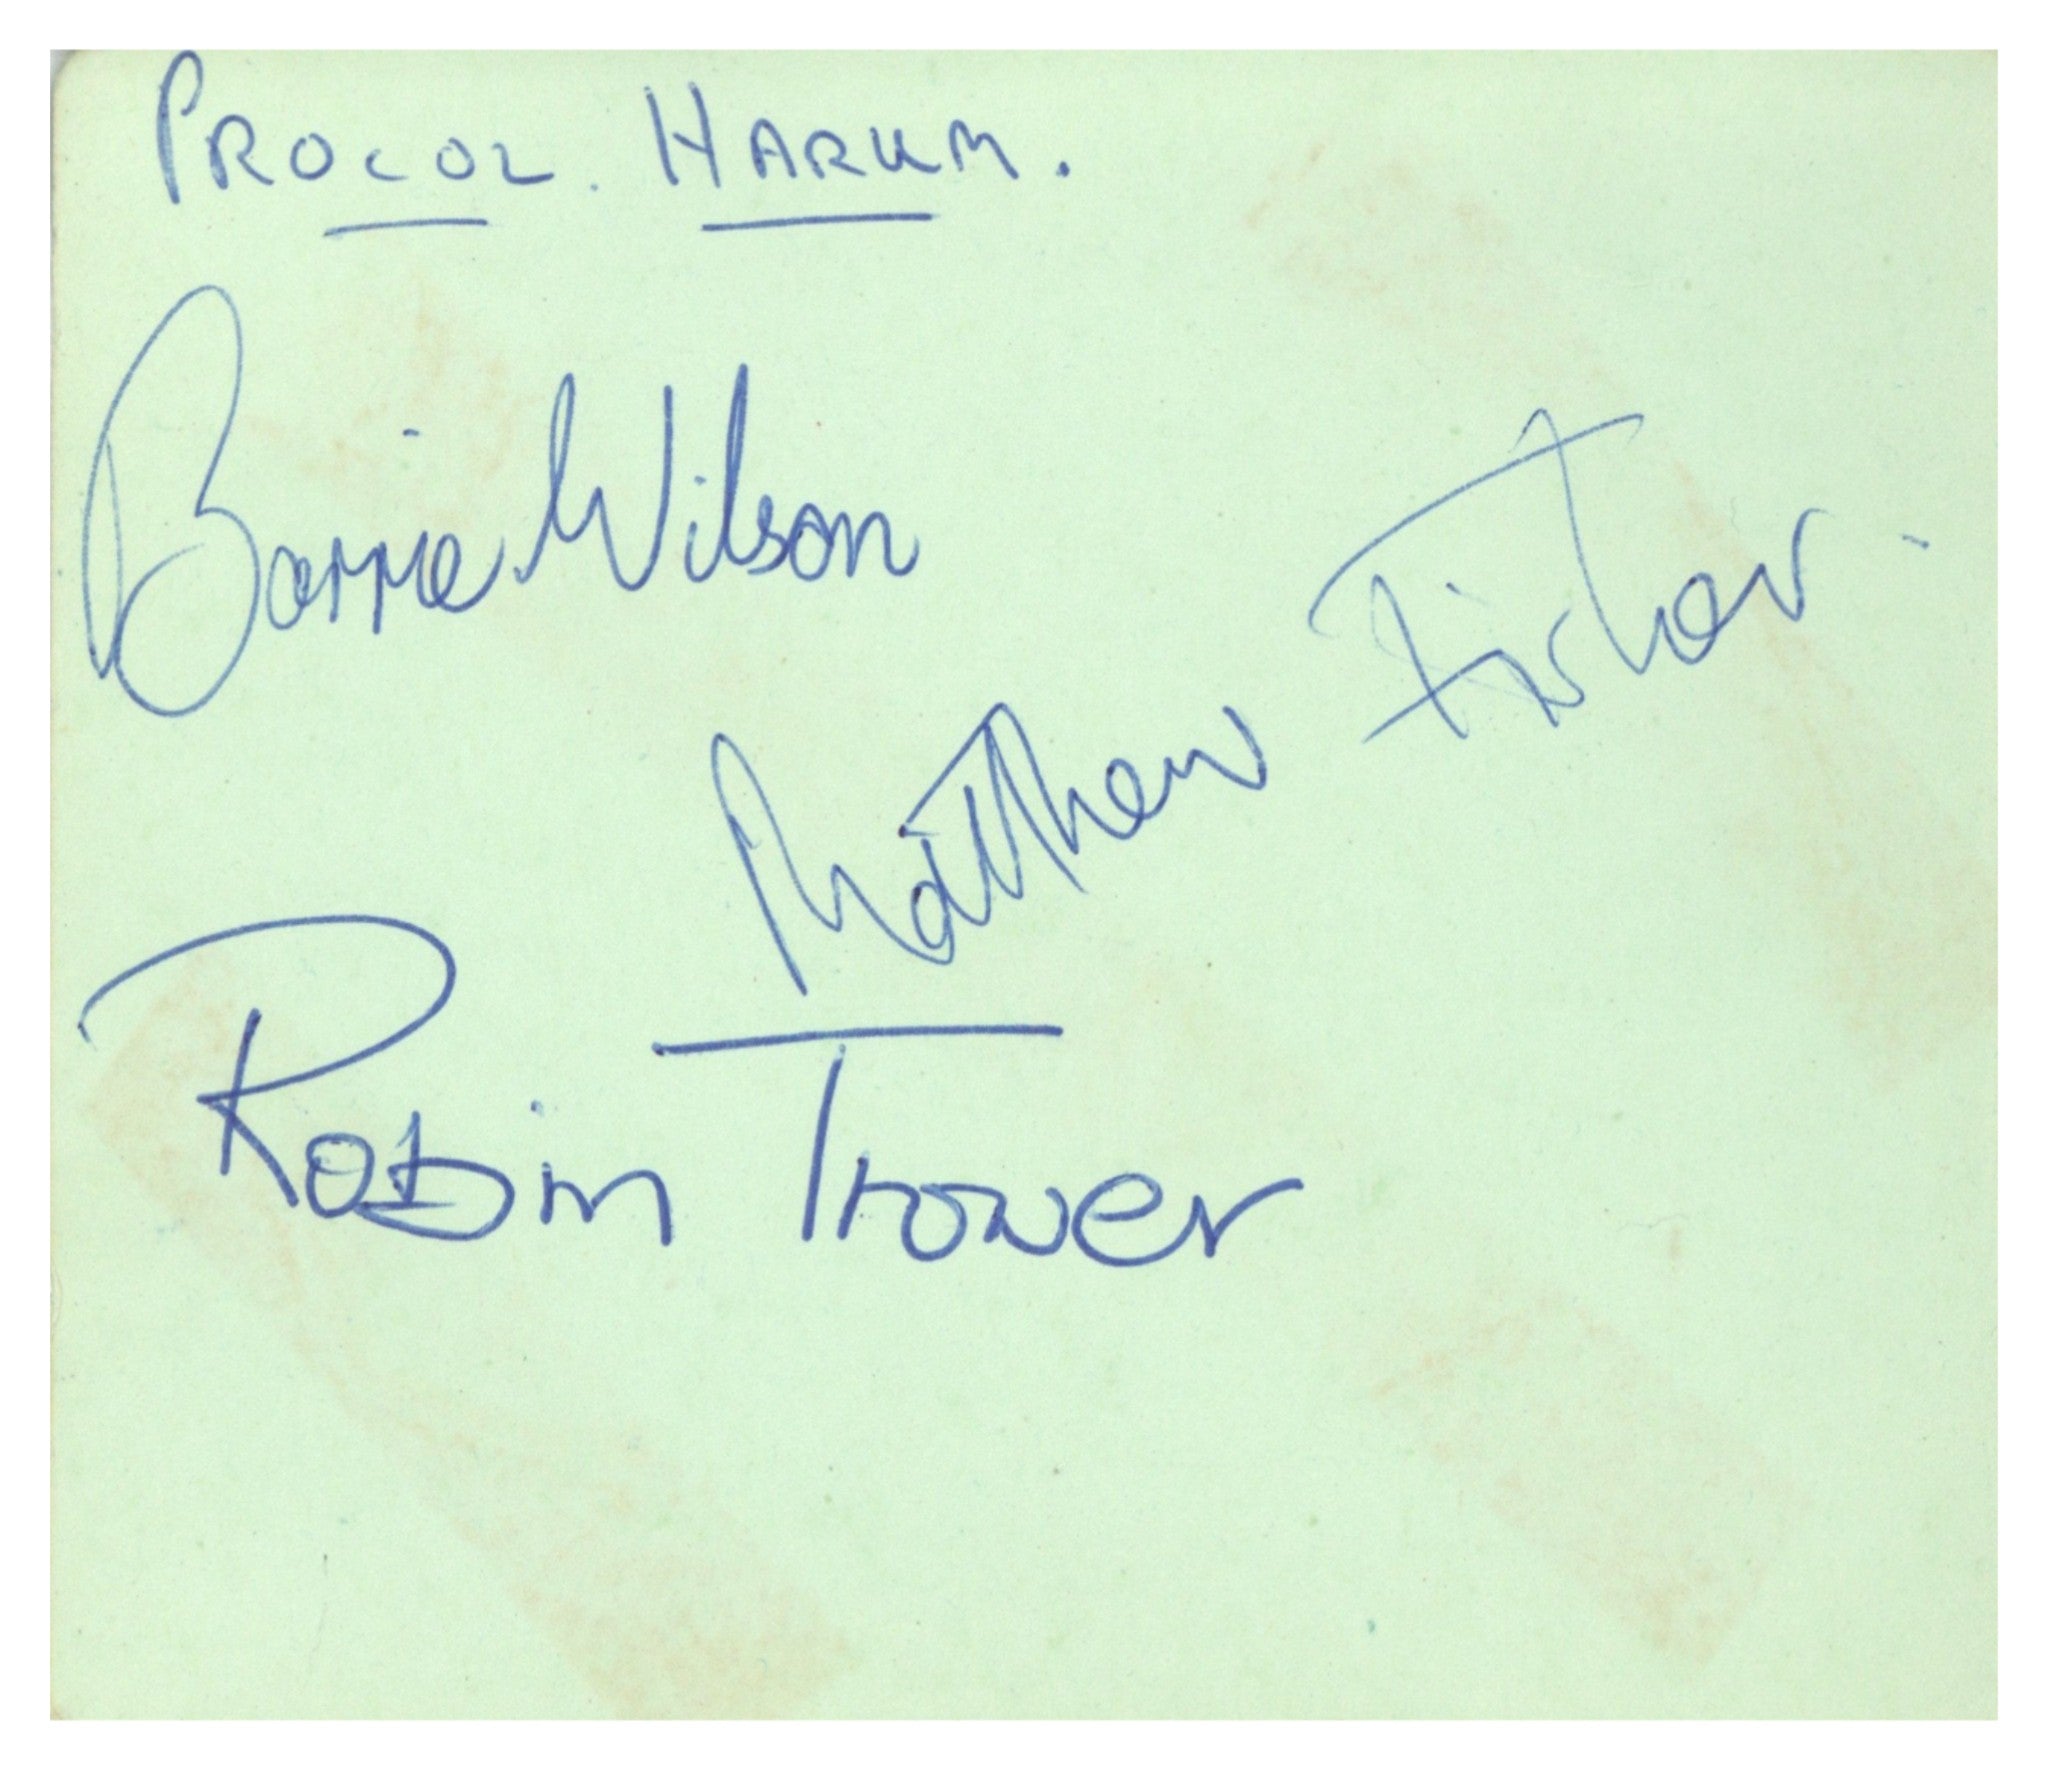 PROCOL. HARUM.
Barrie Wilson
Matthew Fisher.
Robin Trower